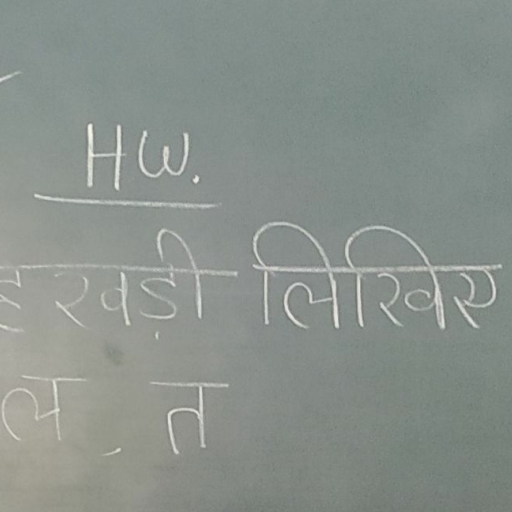 HW.
हखड़ी लिखिए
ल , त